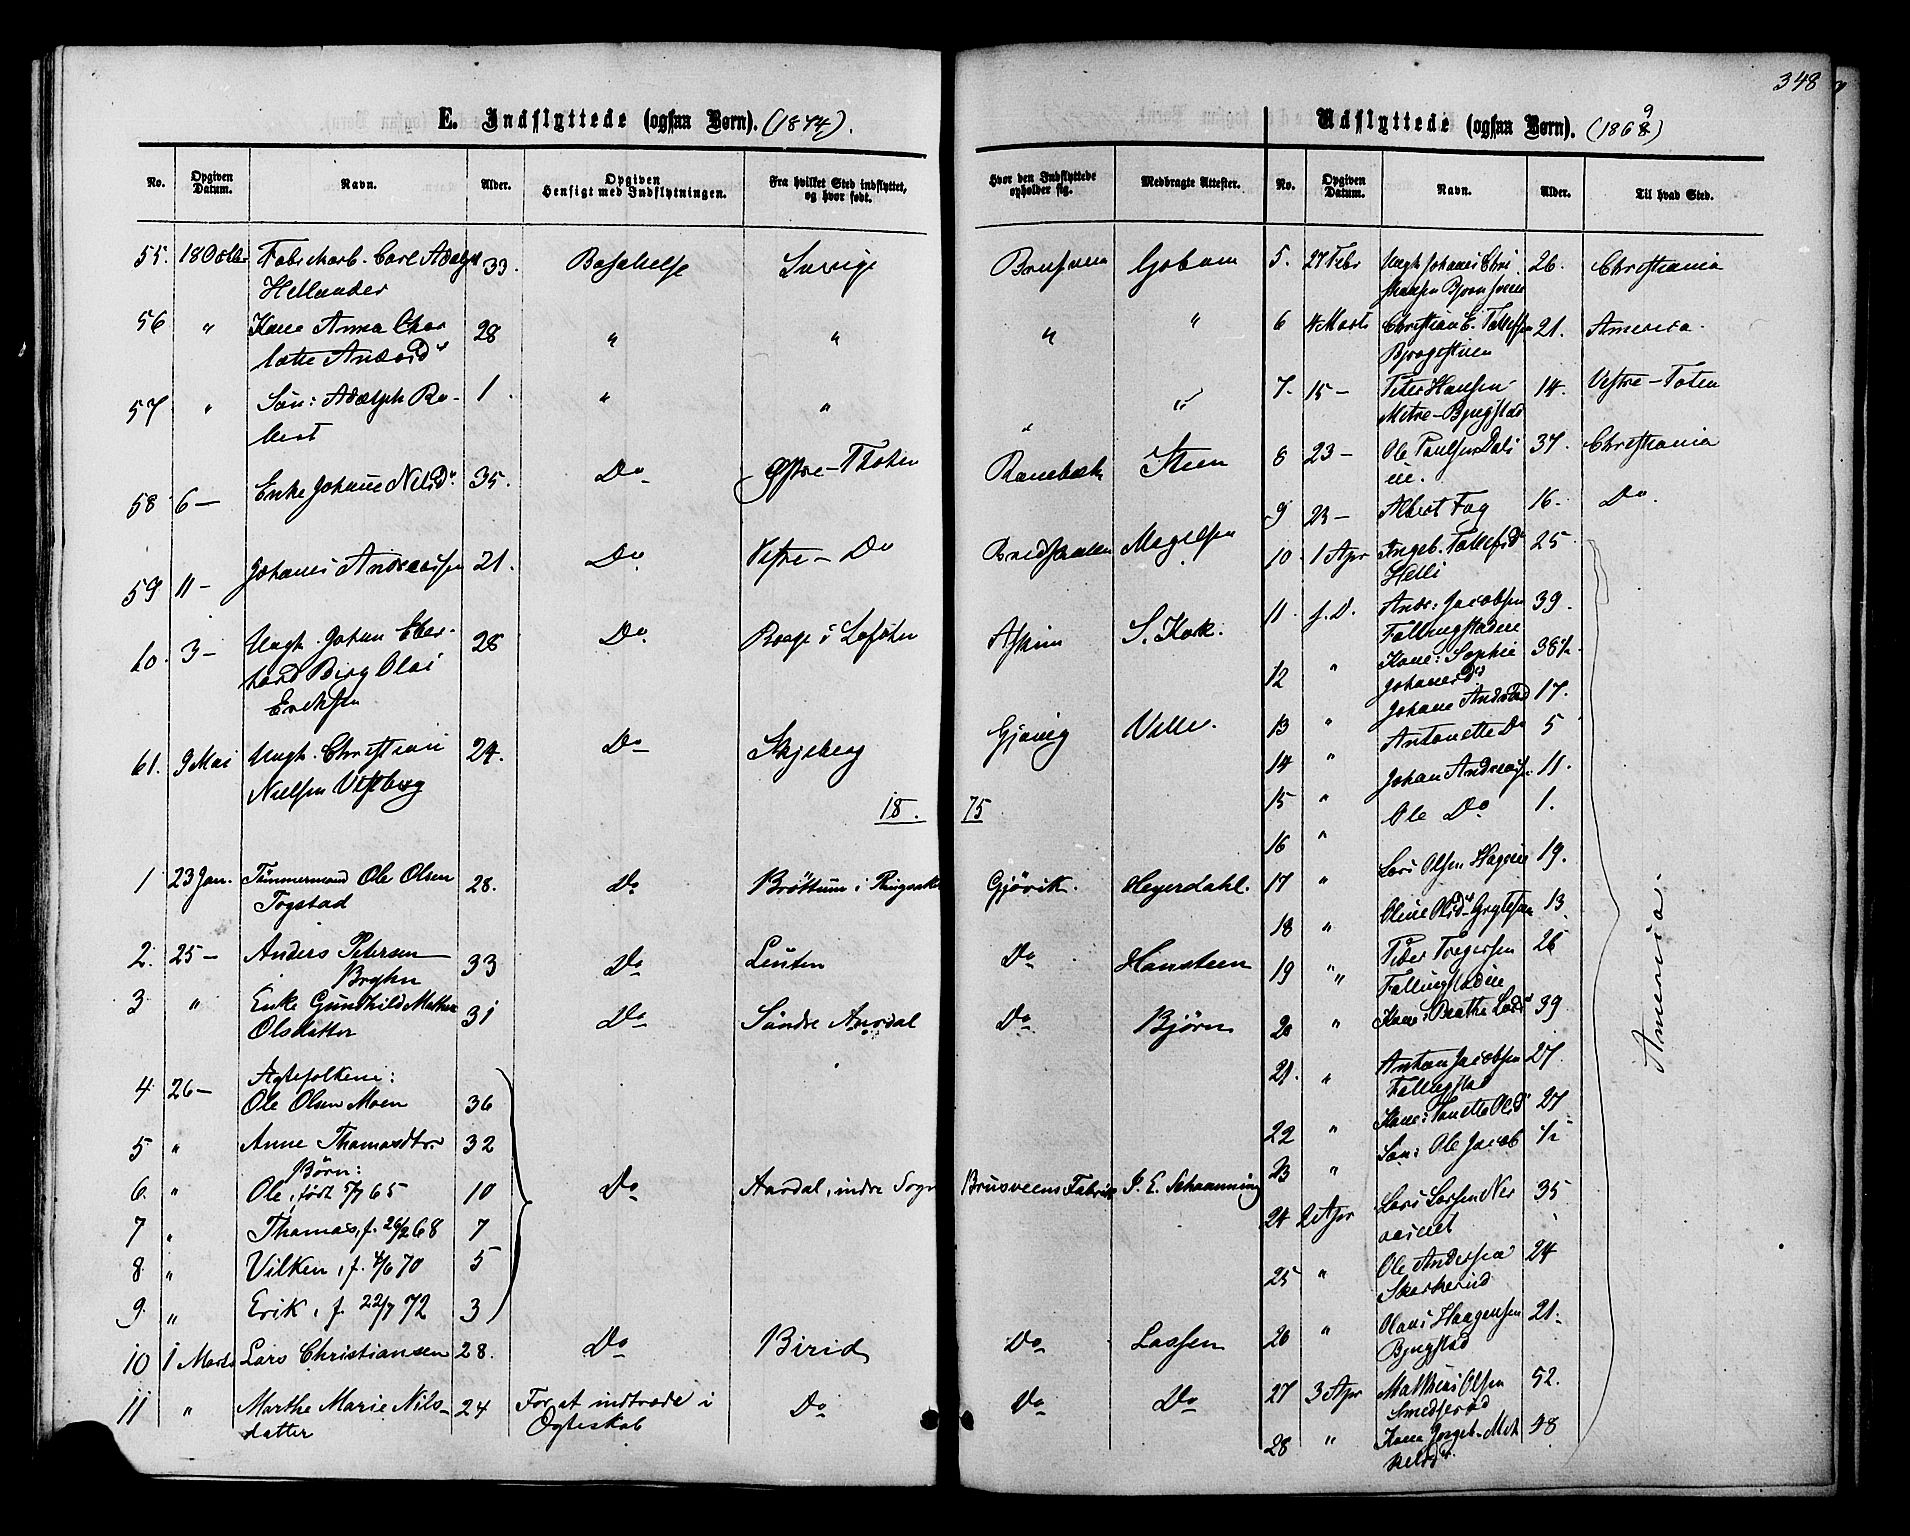 348
E. Indflyttede (ogsaa Børn). (1874).
No. Opgiven Datum. Navn. Alder. Opgiven Hensigt med Indflytningen. Fra hvilket Sted indflyttet, og hvor født. Hvor den Indflyttede opholder sig. Medbragte Attester.
55. 18 Octbr Fabrikarb. Carl Adolph 33 Bosættelse Sverige Brusveen
Hellander
56 " Kone Anna Char 28 " " " "
lotte Andersd
57 " Søn: Adolph Ro- 1. " " " "
bert
58 6 — Enke Johane Nilsd. 35. Do Østre-Thoten Steen
59 11 — Johanes Andreassen 21. Do Vestre — Do Magelsen
60. 3 — Ungk. Johan Eber- 28 Do Borge i Lofoten S. Kok.
hard Berg Olai
Eriksen
61. 9 Mai Ungk. Christian 24. Do Skjeberg Gjøvig
Nielsen Vestberg
18. 75
1 23 Jan. Tømmermand Ole Olsen 28. Do Brøttum i Ringsak. Gjövik. Heyerdahl.
Togstad
2. 25 — Anders Petersen 33 Do Leuten Do Hansteen
Bryhn
3 " Enke Gunhild Mathea 31 Do Söndre Aurdal Do Björn
Olsdatter
Ægtefolkene:
4 26 — Ole Olsen Moen 36
5 " Anne Thomasdtr. 32
Börn:
6. " Ole, født 5/7 65 10 Do Aardal, indre Sogn Brusveens Fabrik J. E. Schanning
7 " Thomas, f. 26/2 68 7
8 " Vilken, f. 4/6 70 5
9. " Erik, f. 22/7 72 3
10 1 Marts Lars Christiansen 28. Do Birid Do Lassen
11 " Marthe Marie Nils- 24 For at indtræde i Do Do Do
datter Ægteskab
Udflyttede (ogsaa Børn). (1869)
No. Opgiven Datum. Navn. Alder. Til hvad Sted.
5. 27 Febr Ungk Johanes Chri 26. Christiania
stiansen
6 4 Marts Christian E. Tollefsen 21. America.
7. 15 — Peter Hansen 14. Vestre-Toten
8 23 — Ole Paulsen Dali 37. Christiania
ie.
9 23 — Albert Fog 16. Do.
10. 1 Apr Ingeb. Tollefsd 25.
11. s. D. Andr: Jacobsen 39.
12 " Kone: Sophie 38 1/2
Johanesd
13 " Johane Andrsd 17.
14 " Antonette Do 5
15 " Johan Andreass. 11.
16 " Ole Do 1.
17 " Lars Olsen 19.
18 " Oline Olsd 13.
19 " Peder Torgersen 26
20 " Kone: Beathe 39
21. " Anton Jacobsen 27.
Fallingstad
22 " Kone: Olsd 27
23 " Søn: Ole Jacob 1/2
24 2 Apr Lars Larsen 35
25 " Ole Andersen 24
26 " Olaus Haagensen 21.
Bjugstad
27 3 Apr Matthias Olsen 52.
28 " Kone 48
America.